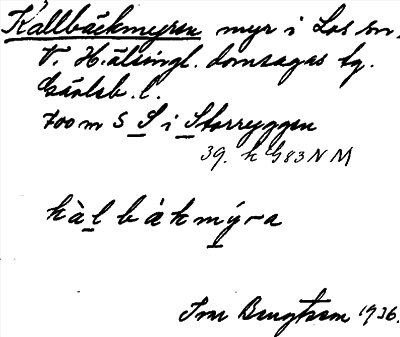 Källbäckmyran myr i Los sn,
V. Hälsingl. domsagas tg.
Gävleb. l.
700 m S S i Storryggen
39. h G83NM
kàlbákmýra
Bengtsson 1936.